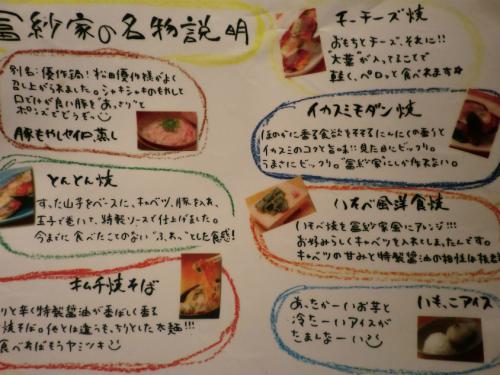 冨紗家の名物説明
別名:優作鍋!松田優作様がよく
召し上がられました。シャキシャキのもやしと
口どけが良い豚を"あっさり"と
ポンズでどうぞ
豚もやしセイロ蒸し
とんとん焼
すった山芋をベースに、キャベツ、豚を入れ、
玉子で巻いて、特製ソースで仕上げました。
今までに食べたことのない"ふわっ"とした食感!
キムチ焼そば
リと辛く特製醤油が香ばしく香る
焼そば。他とは違うもっちりとした太麺!!!
食べればもうヤミツキ
モーチーズ焼
おもちとチーズ、それに!!
"大葉"が入ってることで
軽く、ペロッと食べれます☆
イカスミモダン焼
ほのかに香る食欲をそそるにんにくの香りと
イカスミのコクと旨味!!見た目にビックリ。
うまさにビックリ。"冨紗家"にしか作れない。
いそべ風洋食焼
いそべ焼を冨紗家風にアレンジ!!!
お好みらしくキャベツを入れてしまったんです。
キャベツの甘みと特製醤油の相性は抜
いもっこアイス
あったかーいお芋と
冷たーいアイスが
たまんなーい